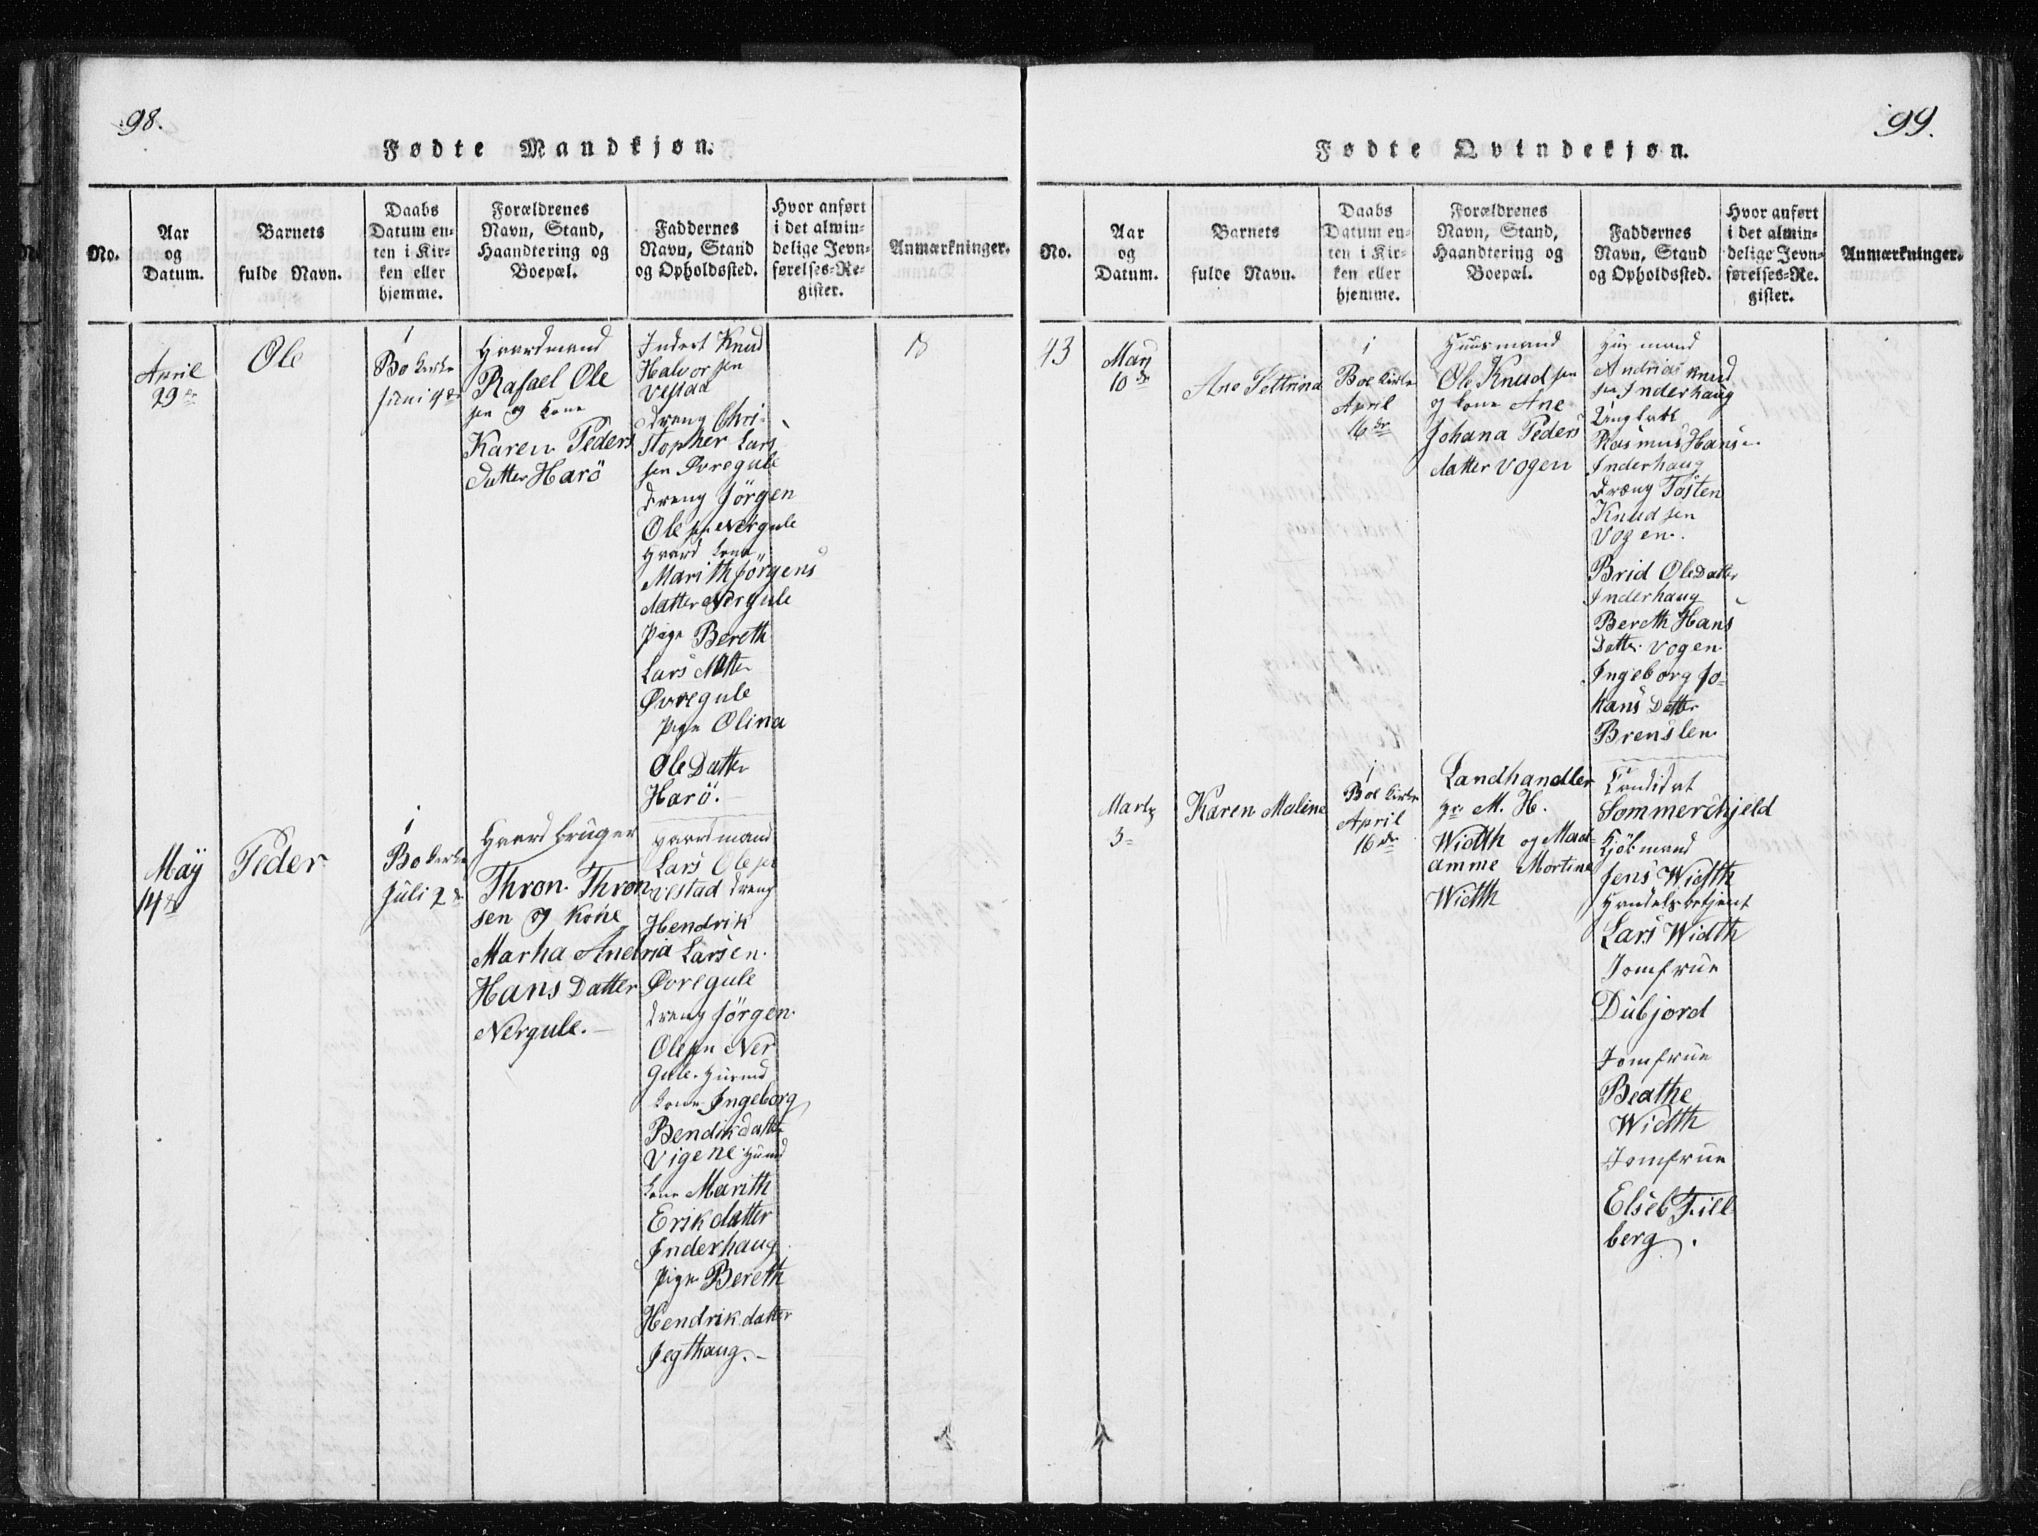 98.
Fødte Mandkjøn.
No.
Aar
og
Datum.
Barnets
fulde Navn.
Daabs
Datum en-
ten i Kir-
ken eller
hjemme.
Forældrenes
Navn, Stand,
Haandtering og
Boepæl.
Faddernes
Navn, Stand
og Opholdssted.
Hvor anført
i det almin-
delige Jevn-
førelses-Re-
gister.
Anmærkninger.
April
29de
Ole
i
Bo Kirke
Juni 4de
Gaardmand
Rafael Ole
sen og Kone
Karen Peders
Datter Harö
Inderst Knud
Halvorsen
Vestad
Dreng Chri-
stopher Lars
sen Øvregule
Dreng Jörgen
Ole sen Nergule
Gaard Kone
Marith Jörgens
datter Nergule
Pige Bereth
Lars datter
Øvregule
Pige Olina
Ole Datter
Harö.
May
14de
Peder
i
Bo Kirke
Juli 2de
Gaard bruger
Thron Thron
sen og Kone
Marha Andria
Hans Datter
Nergule.
gaardmand
Lars Olesen
Vestad dreng
Hendrik
Larsen
Øvregule
Dreng Jörgen
Olesen Ner
gule. Huusmd
Kone Ingeborg
Bendikdatter
Vigene Huusmd
Kone Marith
Erikdatter
Inderhaug
Pige Bereth
Hendrikdatter
Jegthaug.
99.
Fødte Qvindekjøn.
No.
Aar
og
Datum.
Barnets
fulde Navn.
Daabs
Datum en-
ten i Kir-
ken eller
hjemme.
Forældrenes
Navn, Stand,
Haandtering og
Boepæl.
Faddernes
Navn, Stand
og Opholdssted.
Hvor anført
i det almin-
delige Jevn-
førelses-Re-
gister.
Anmærkninger.
43
Mart
10de
Ane Pettrina
i
Boe Kirke
April
16de
Huusmand
Ole Knudsen
og Kone Ane
Johana Peders
datter Vogen
Huusmand
Andrias Knud
sen Inderhaug
Ungkarl
Rasmus Hanse-
Inderhaug
Dræng Tosten
Knudsen
Vogen.
Brid OleDatter
Inderhaug
Bereth Hans
Datter Vogen
Ingeborg Jo-
hans Datter
Brenslen
Martz
3
Karen Maline
i
Boe Kirke
April
16de
Landhandler
Hr. M. H.
Width og Mad-
amme Mortine
Width
Candidat
Sommerschjeld
Kjöbmand
Jens Width
Handelsbetjent
Lars Width
Jomfrue
Dübjord
Jomfrue
Beathe
Width
Jomfrue
Elseb Fill
berg.